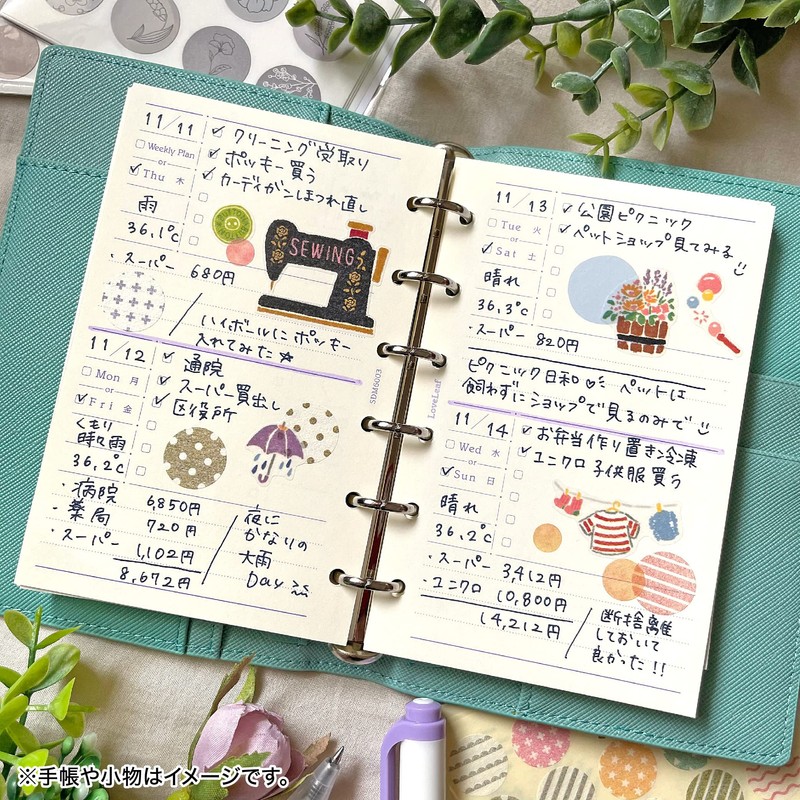 11/11
Weekly Plan
or
Thu 木
雨
36.1℃
クリーニング受取り
ポッキー買う
カーディガンほつれ直し
SEWING
・スーパー 680円
ハイボールにポッキー
入れてみた☆
11/12
Mon 月
or
Fri 金
くもり
時々雨
36.2℃
通院
スーパー買出し
区役所
・病院 6,850円
・薬局 720円
・スーパー 1,102円
8,672円
夜に
かなりの
大雨
Day
SDM5003
LoveLeaf
11/13
Tue 火
or
Sat 土
晴れ
36.3℃
公園ピクニック
ペットショップ見てみる
・スーパー 820円
ピクニック日和♡ ペットは
飼わずにショップで見るのみで
11/14
Wed 水
or
Sun 日
晴れ
36.2℃
お弁当作り置き冷凍
ユニクロ子供服買う
・スーパー 3,412円
・ユニクロ 10,800円
14,212円
断捨離
しておいて
良かった!!
※手帳や小物はイメージです。